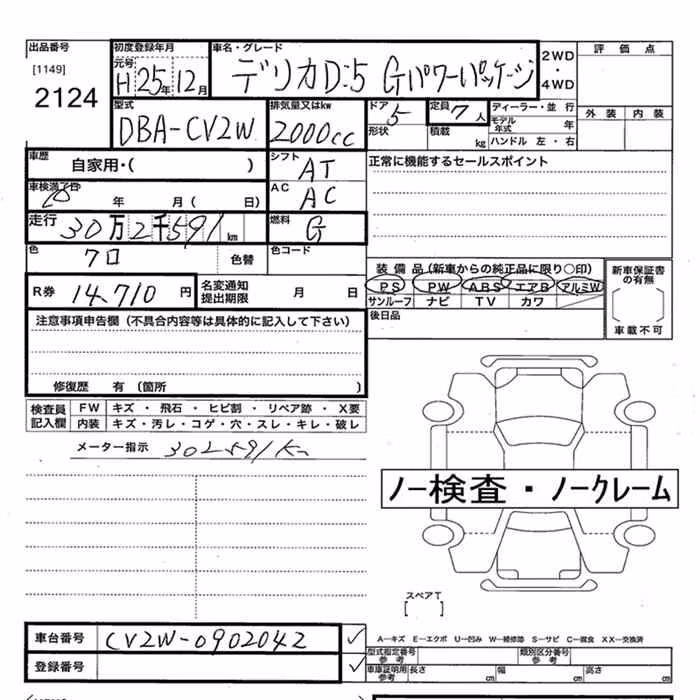 出品番号
[1149]
2124
初度登録年月
元号
H 25年 12月
車名・グレード
デリカD:5 Gパワーパッケージ
2WD
・
4WD
評価点
外装 内装
型式
DBA-CV2W
排気量又はkw
2000cc
ドア
5
定員
7人
形状
積載
kg
ディーラー・並行
モデル年式 年
ハンドル 左・右
車歴
自家用・( )
シフト
AT
正常に機能するセールスポイント
車検満了日
年 月( 日)
AC
AC
走行
30万2千591km
燃料
G
色
色替
色コード
R券 14,710円
名変通知
提出期限
月 日
装備品(新車からの純正品に限り○印)
PS PW ABS エアB アルミW
サンルーフ ナビ TV カワ
新車保証書
の有無
[ ]
車載不可
後日品
注意事項申告欄(不具合内容等は具体的に記入して下さい)
修復歴 有(箇所 )
検査員
記入欄
FW キズ・飛石・ヒビ割・リペア跡・X要
内装 キズ・汚レ・コゲ・穴・スレ・キレ・破レ
メーター指示 302591km
ノー検査・ノークレーム
スペアT
[ ]
車台番号 CV2W-0902042 ✓
登録番号 ✓
A-キズ E-エクボ U-凹み W-補修跡 S-サビ C-腐食 XX-交換済
型式指定番号
参考
類別区分番号
参考
車庫証明用
参考
長さ cm 幅 cm 高さ cm